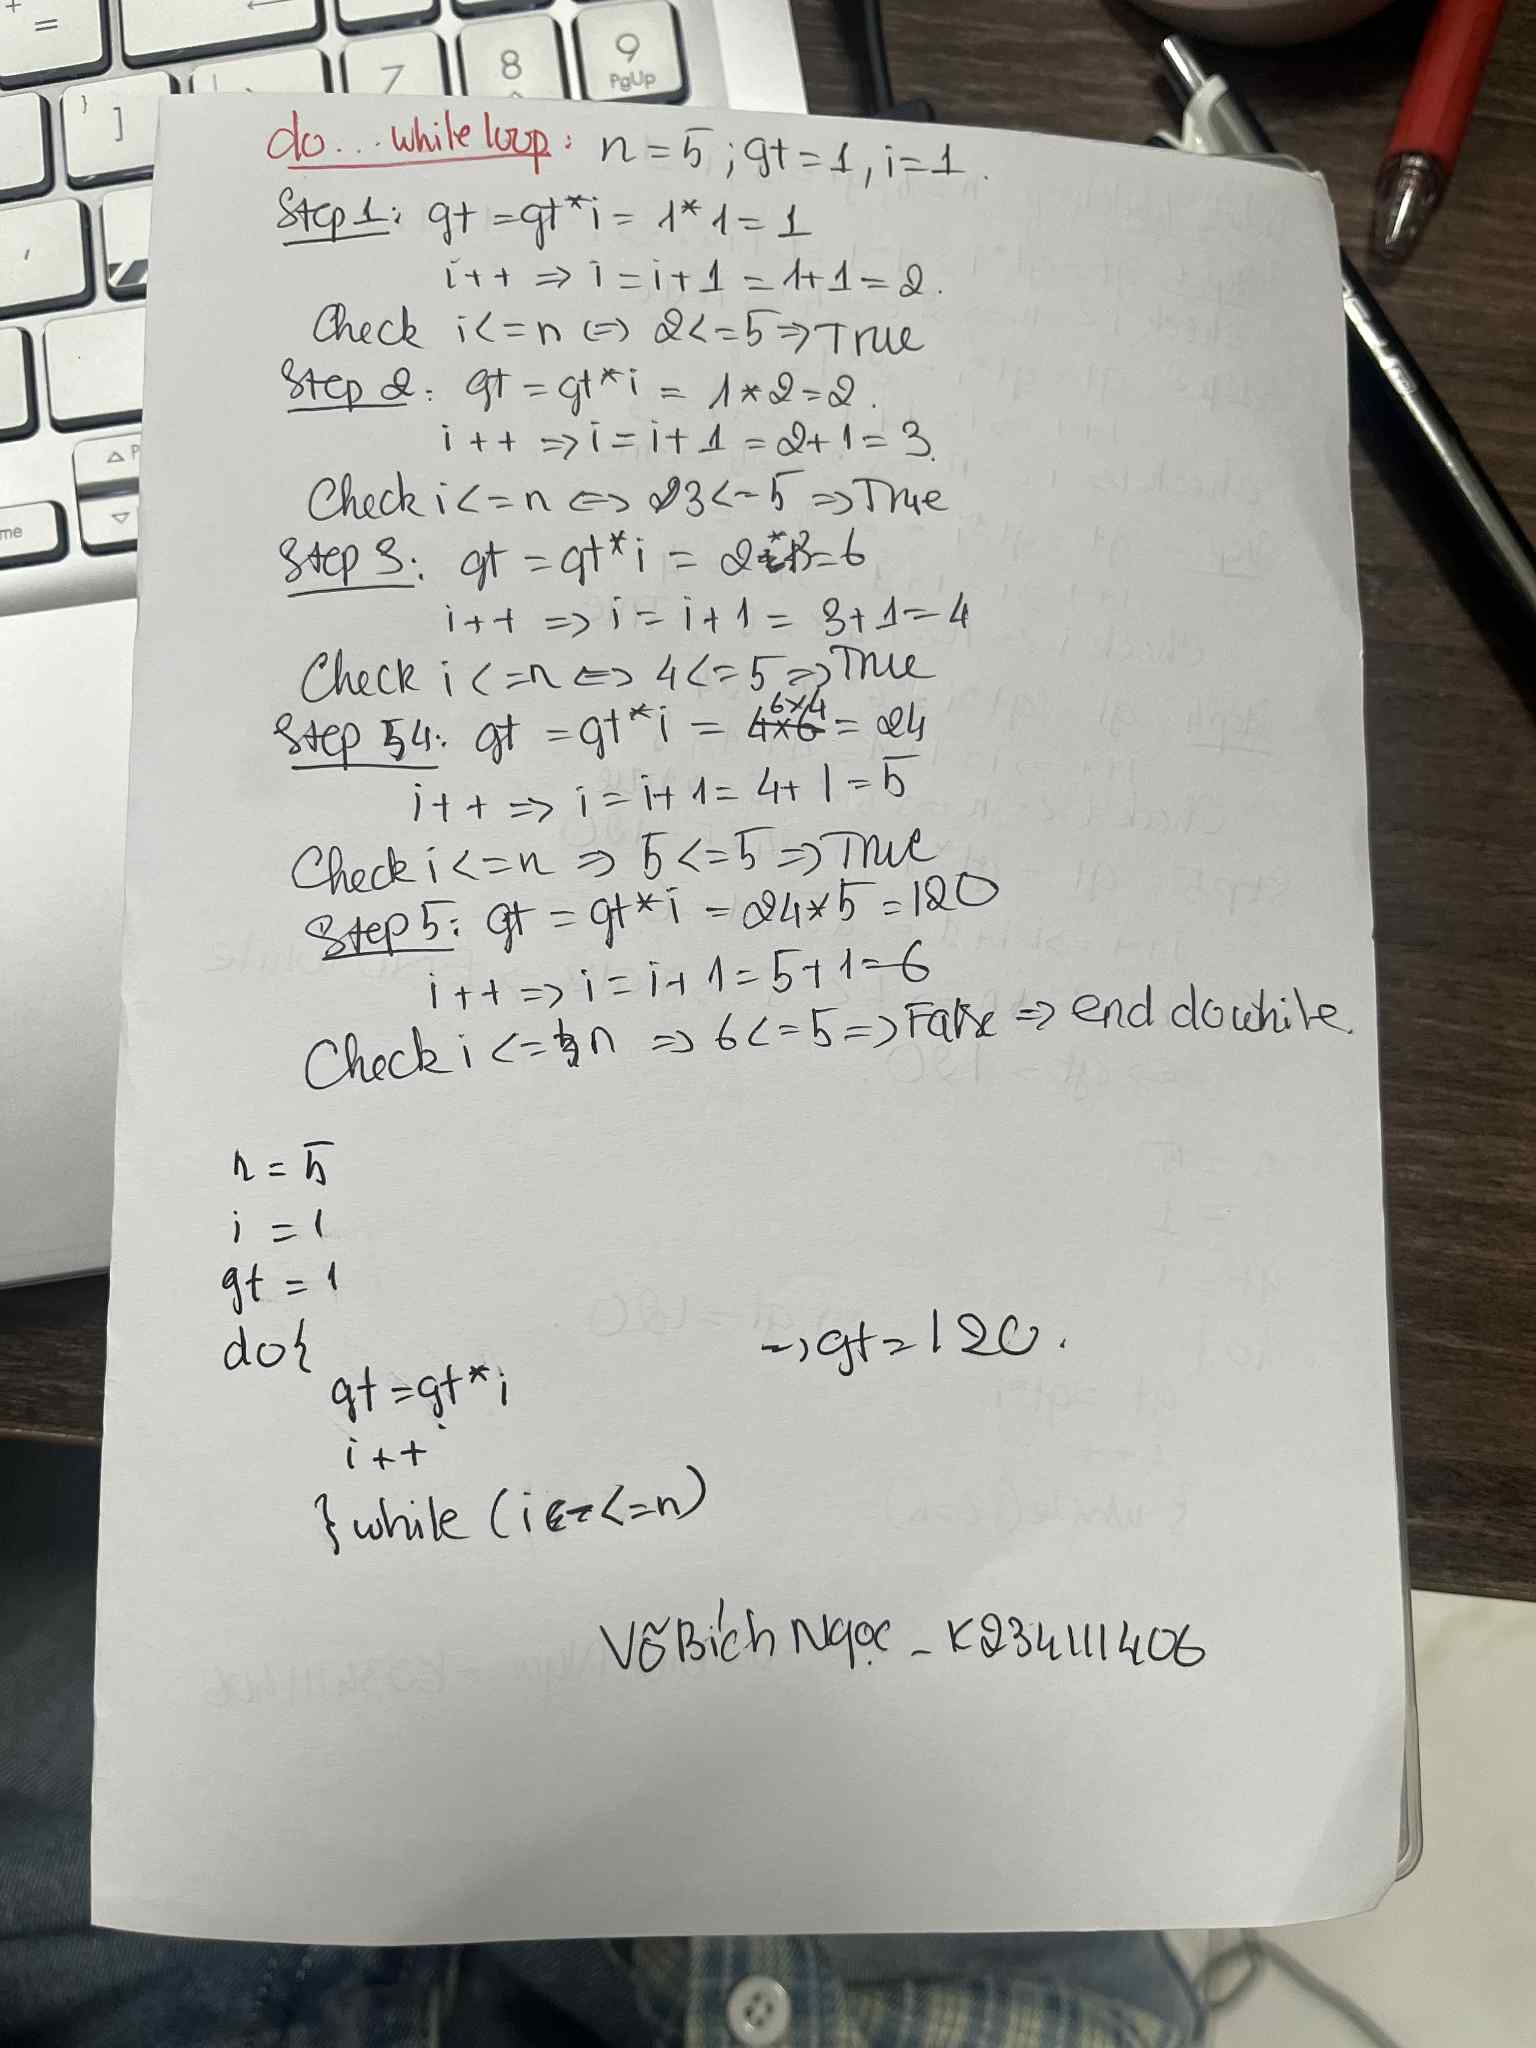 + =
7 8 9
PgUp
} ]
me
do...while loop: n=5; gt=1, i=1.
Step 1: gt=gt*i=1*1=1
i++ => i=i+1=1+1=2.
Check i<=n <=> 2<=5=>True
Step 2: gt=gt*i=1*2=2.
i++ =>i=i+1=2+1=3.
Check i<=n <=> 3<=5 =>True
Step 3: gt=gt*i=2*3=6
i++ =>i=i+1=3+1=4
Check i<=n <=> 4<=5=>True
Step 4: gt=gt*i=6x4=24
i++ => i=i+1=4+1=5
Check i<=n => 5<=5=>True
Step 5: gt=gt*i=24*5=120
i++=>i=i+1=5+1=6
Check i<=n => 6<=5=>False => end do while.
n=5
i=1
gt=1
do{
->gt=120.
gt=gt*i
i++
} while (i<=n)
Võ Bích Ngọc - K234111406